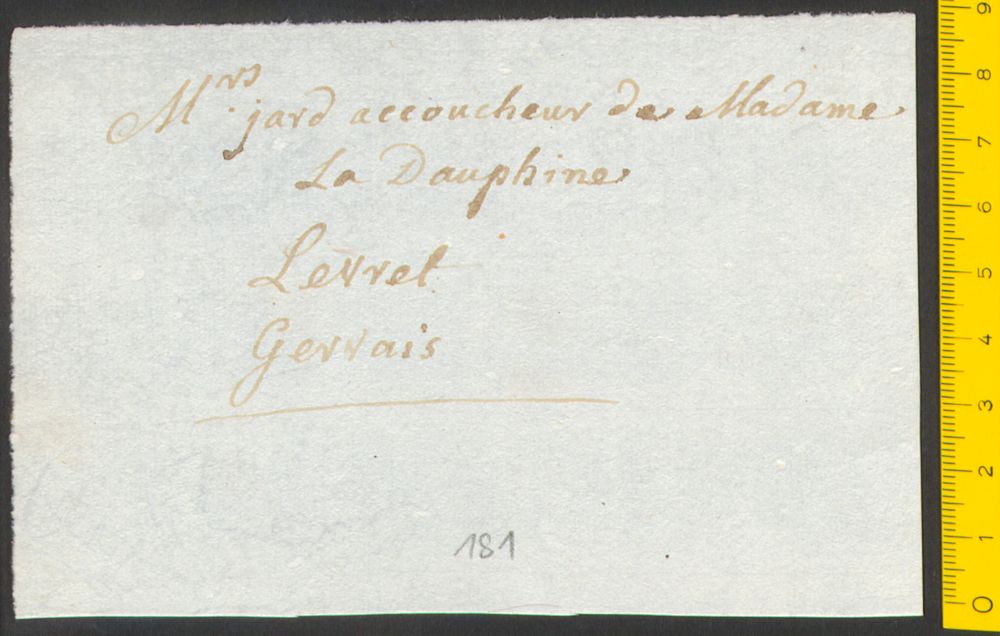 Mrs. jard accoucheur de Madame
La Dauphine
Levret
Gervais
181
9
8
7
6
5
4
3
2
1
0